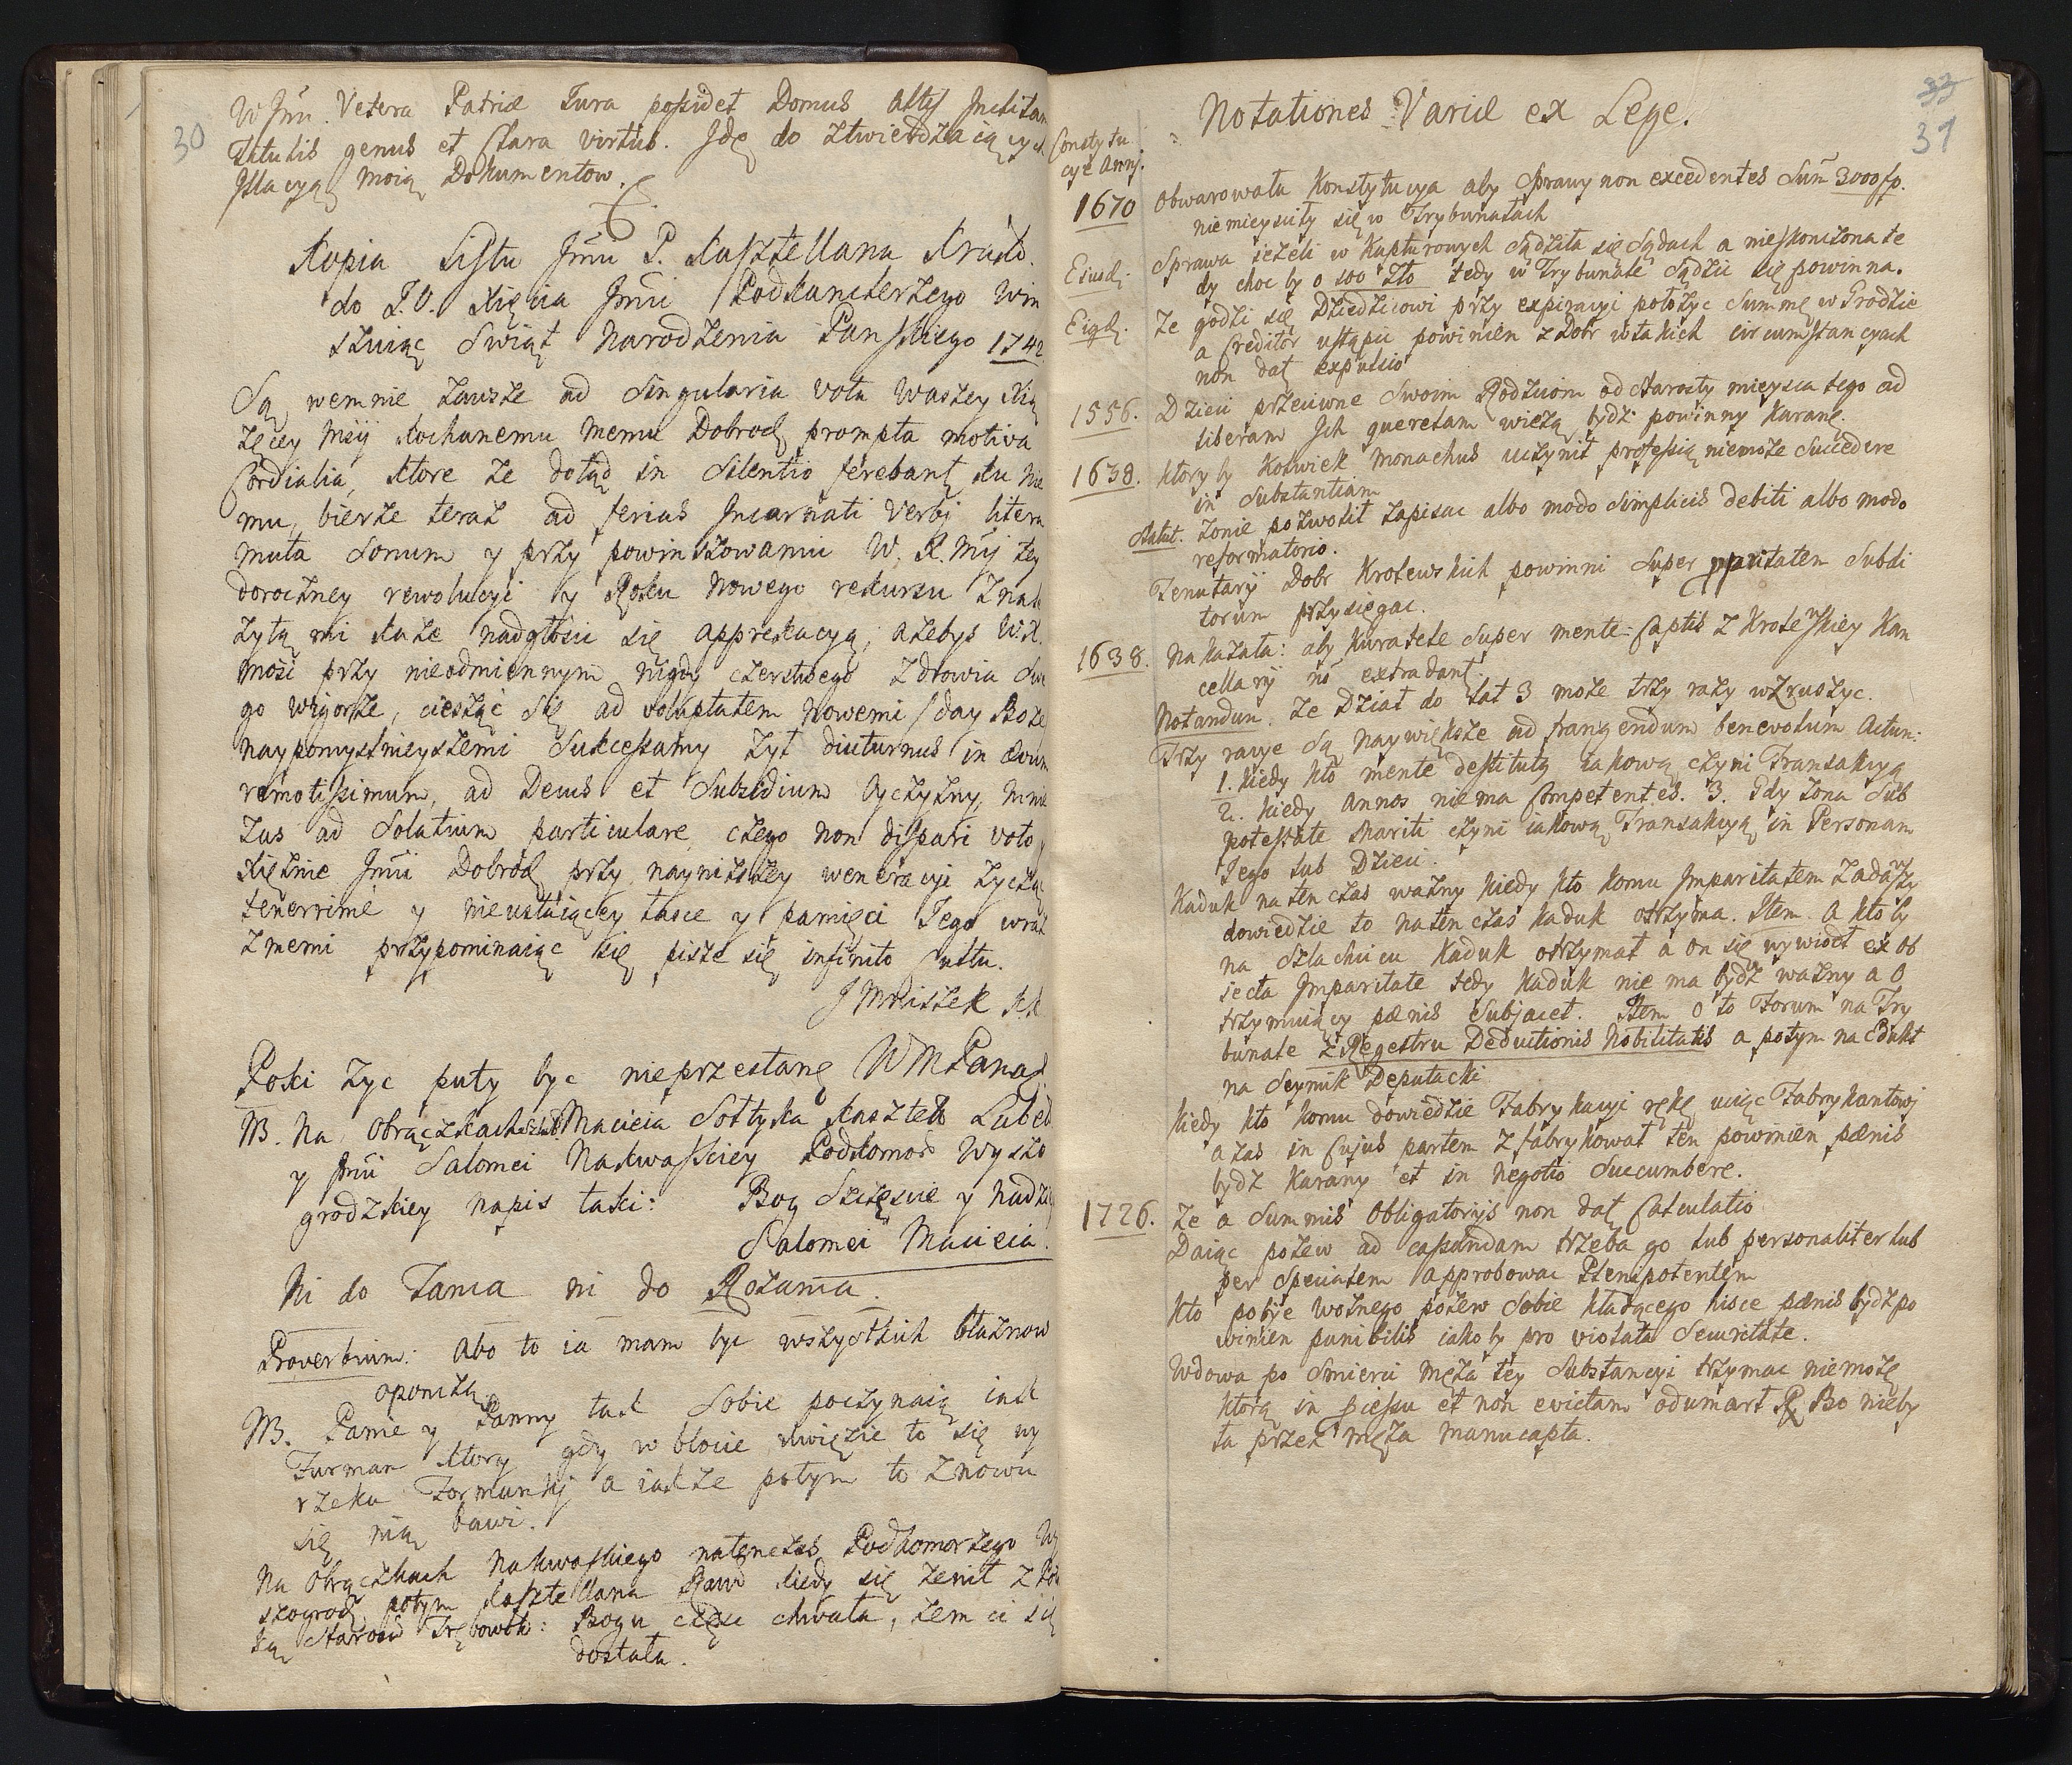 30
WJm̃. Vetera Patriæ Jura possidet Domus
Titulis genus et Clara virtus. Idę do ztwierdzaiących
moią Dokumentow.
Kopia Listu Jm̃ci P. Kasztellana Krak.
do J.O. Xięcia Jm̃ci Podkanclerzego Win
szuiąc Swiąt Narodzenia Panskiego 1742
Są wemnie zawsze ad Singularia vota Waszey Xią
zęcey Mści kochanemu memu Dobrod prompta motiva
Cordialia, ktore ze dotąd in Silentio ferebant ku nie
mu, bierze teraz ad ferias Incarnati Verbi litera
muta Sonum y przy powinszowaniu W. X. Mści tey
doroczney rewolucyi y Roku Nowego rekursu
zytą mi kaze nadgłosic się apprekacyą, azebys W.X.
mosć przy nieodmiennym nigdy czerstwego zdrowia Sw
go wigorze, ciesząc się ad voluptatem Nowemi /day Boze
naypomyslnieyszemi Sukcessamy zył diuturnus in ævum
remotissimum, ad Decus et Subsidium Oyczyzny, mnie
zas ad Solatium particulare, czego non dispari voto y
Xięznie Jm̃ci Dobrod przy naynizszey weneracyi zyczą
tenerrime y nieustaiącey łasce y pamięci Jego wraz
zmemi przypominaiąc się pisze się infinito Cultu.
J Mniszek KK
Poki zyc puty byc nieprzestanę WMPana
NB. Na Obrączkach Macieia Sołtyka Kasztel Lubel
y Jm̃ci Salomei Nakwasskiey Podkomor Wyszo
grodzkiey napis taki: Bog Szczęscie y Nadzie
Salomei Macieia.
Ni do Tanca ni do Rozanca.
Proverbium: Abo to ia mam byc wszystkich błaznow
oponczą
NB. Panie y Panny tak Sobie poczynaią iak
Furman ktory gdy w błocie uwięznie to się wy
rzeka Formanki a iakze potym to znowu
się nią bawi.
Na Obrączkach Nakwaskiego natenczas Podkomorzego Wy
szogrod potym Kasztellana Raw kiedy się zenił z
ką Starosc Trębowsk: Bogu czesc chwała, zem ci się
dostała.
33
31
Notationes Variæ ex Lege.
Constytu
cye Anni.
1670 Obwarowała Konstytucya aby Sprawy non excedentes Sum̃ 3000 fp.
niemieysciły się w Trybunałach
Eiusd. Sprawa iezeli w Kapturowych Sądziła się Sądach a nieskonczona te
dy choc by o 100 Zło tedy w Trybunale Sądzic się powinna.
Eiqd. Ze godzi się Dziedzicowi przy expiracyi połozyc Summę w Grodzie
a Creditor ustąpic powinien z Dobr wtakich circumstancyach
non dat expulsio
1556. Dzieci przeciwne Swoim Rodzicom od Starosty mieysca tego ad
liberam Ich querelam wiezą bydz powinny karane.
1638. Ktory by kolwiek Monachus uczynił professią niemoze Succedere
in Substantiam
Statut. Zonie pozwolił zapisac albo modo Simplicis debiti albo modo
reformatorio.
Tenutarij Dobr Krolewskich powinni Super paritatem Subdi
torum przysięgac.
1638. Nakazała: aby Kuratele Super mente-Captis z Krolewskiey Kan
cellarij nõ extradant.
Notandum. Ze Dział do lat 3 moze trzy razy wzruszyc.
Trzy racye Są naywiększe ad frangendum benevolum Actum:
1. kiedy kto mente destitutą iakową czyni Transakcyą
2. kiedy Annos niema Competentes. 3. Gdy zona Sub
potestate Mariti czyni iakową Transakcyą in Personam
Jego lub Dzieci.
Kaduk na ten czas wazny kiedy kto komu Imparitatem zadawszy
dowiedzie to natenczas kaduk otrzyma. Item. A kto by
na Szlachcicu kaduk otrzymał a on się wywiodł ex ob
jecta Imparitate tedy kaduk nie ma bydz wazny a O
trzymuiący pænis Subjacet. Item O to Forum na Try
bunale z Regestru Deductionis Nobilitatis a potym na Edukt
na Seymik Deputacki
Kiedy kto komu dowiedzie Fabrykacyi rękę uciąc Fabrykantowi
a zas in Cujus partem zfabrykował ten powinien pænis
bydz karany et in negotio Succumbere.
1726. Ze a Summis Obligatorijs non dat Calculatio
Daiąc pozew ad cassandam trzeba go lub personaliter lub
per Specialem approbowac Plenipotentem
Kto pobije Woznego pozew Sobie kładącego hisce pænis bydz po
winien punibilis iako by pro violata Securitate.
Wdowa po Smierci męza tey Substancyi trzymac niemoze
ktorą in et non evictam odumarł Bo nieby
ta przez męza manucapta.